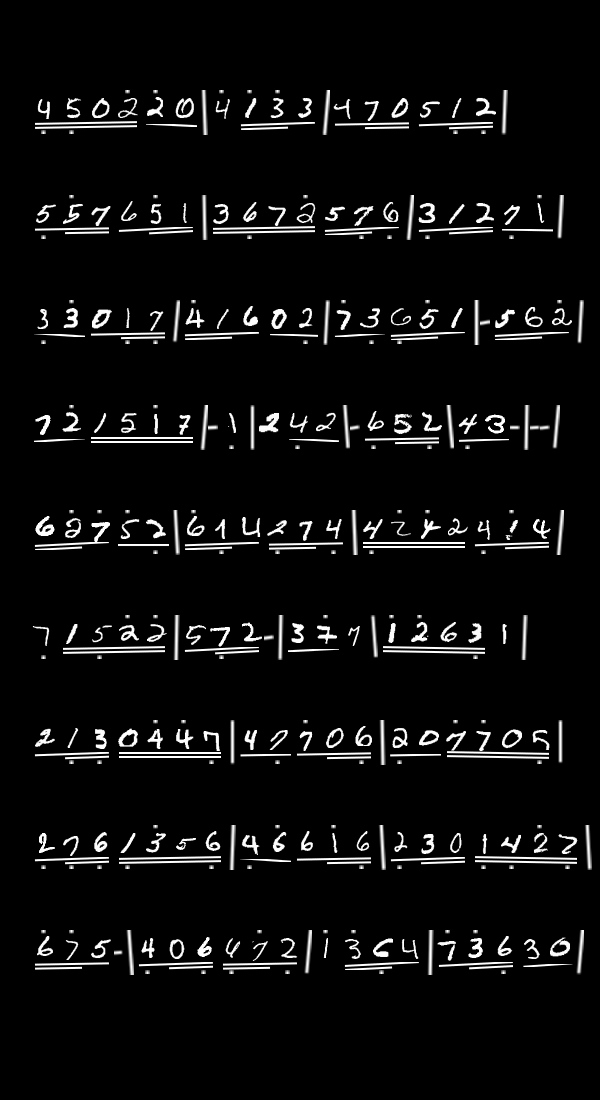 450220|4133|470512
557651|3672576|31271
33017|41602|73651|-562
721517|-1|242|-652|43-|--|
62752|614274|4242414
71522|572-|377|12631|
2130447|47706|207705|
2761356|46616|2301427|
675-|406472|1364|73630|